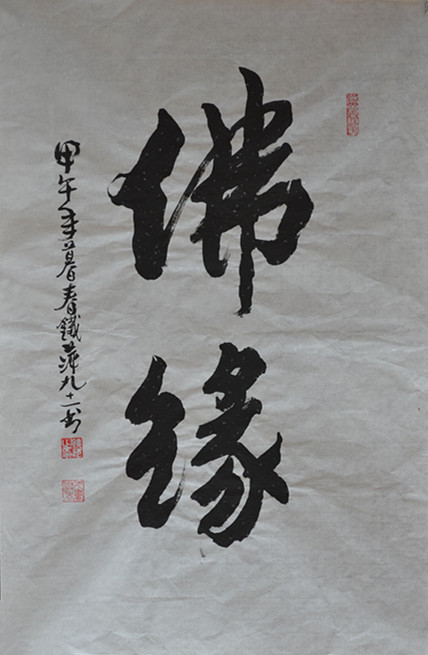 佛缘
甲午年暮春鐵萍九十一书